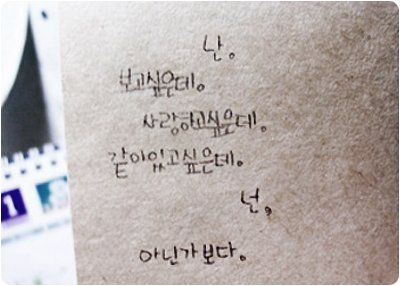 난。
보고싶은데。
사랑하고싶은데。
같이있고싶은데。
넌,
아닌가보다。
1
8